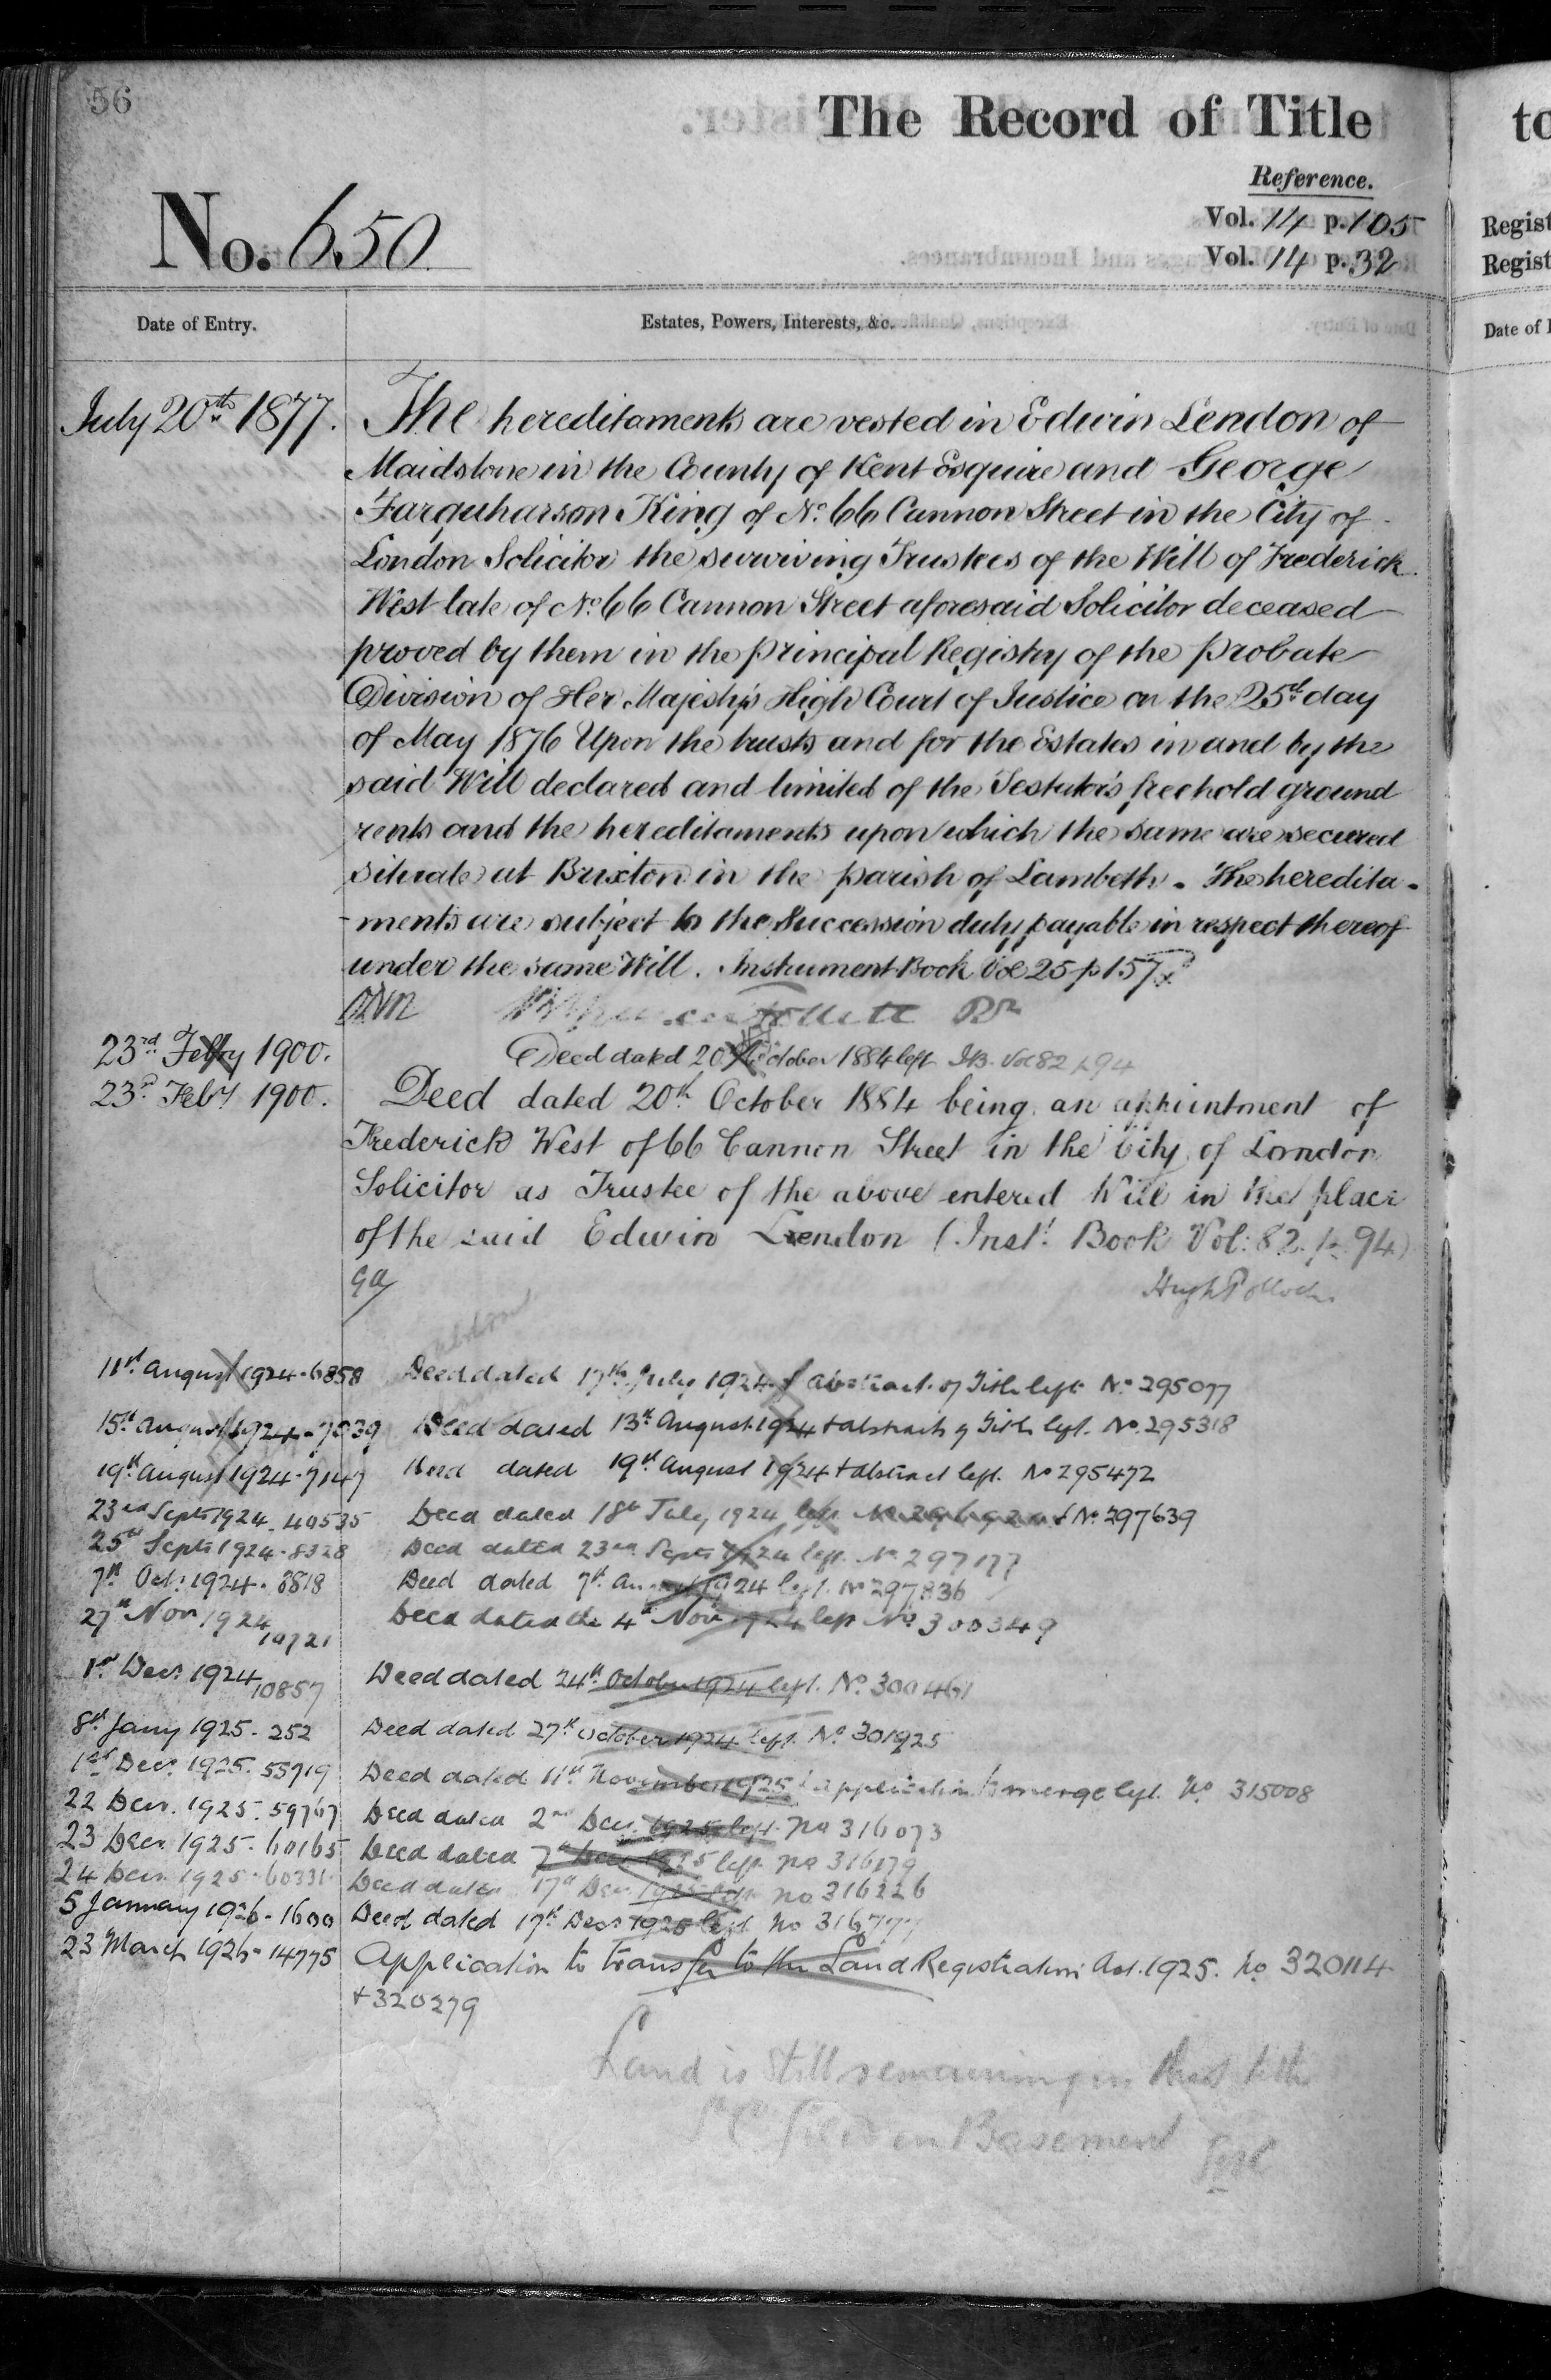 56
The Record of Title
Reference.
No. 650
Vol. 14 p. 105
Vol. 14 p. 32
Date of Entry.
Estates, Powers, Interests, &c.
July 20th 1877. The hereditaments are vested in Edwin Lendon of
Maidstone in the County of Kent Esquire and George
Farquharson King of No. 66 Cannon Street in the City of
London Solicitor the surviving Trustees of the Will of Frederick
West late of No. 66 Cannon Street aforesaid Solicitor deceased
proved by them in the Principal Registry of the Probate
Division of Her Majesty's High Court of Justice on the 25th day
of May 1876 Upon the trusts and for the Estates in and by the
said Will declared and limited of the Testator's freehold ground
rents and the hereditaments upon which the same are secured
situate at Brixton in the parish of Lambeth. The heredita-
-ments are subject to the Succession duty payable in respect thereof
under the same Will. Instrument Book Vol 25 p 157
23rd Febry 1900. Deed dated 20th October 1884 left I.B. Vol 82 p 94
23rd Feby 1900. Deed dated 20th October 1884 being an appointment of
Frederick West of 66 Cannon Street in the City of London
Solicitor as Trustee of the above entered Will in the place
of the said Edwin Lendon (Inst. Book Vol: 82. p. 94)
Hugh Pollock
11th August 1924 - 6858 Deed dated 17th July 1924 & abstract of Title left No 295077
15th August 1924 - 7039 Deed dated 13th August 1924 + abstract of Title left. No. 295318
19th August 1924 - 7147 Deed dated 19th August 1924 + abstract left. No 295472
23rd Sept 1924. 40535 Deed dated 18th July 1924 left No 297639
25th Sept 1924 - 8328 Deed dated 23rd Sept 1924 left. No. 297177
7th Oct: 1924. 8818 Deed dated 7th August 1924 left. No 297836
27th Nov 1924 10721 Deed dated the 4th Nov 1924 left No. 300349
1st Decr 1924 10857 Deed dated 24th October 1924 left. No. 300461
8th Jany 1925 - 252 Deed dated 27th October 1924 left. No 301925
1st Decr. 1925. 55719 Deed dated 11th November 1925 & application to merge left. No 315008
22 Decr. 1925. 59767 Deed dated 2nd Decr. 1925 left. No 316073
23 Decr 1925. 60165 Deed dated 7th Decr 1925 left No 316179
24 Decr. 1925 - 60331 Deed dated 17th Decr 1925 left No 316226
5 January 1926 - 1600 Deed dated 17th Decr 1925 left No 316777
23 March 1926 - 14775 Application to transfer to the Land Registration Act. 1925. No 320114
+ 320279
Land is still remaining in this title
filed in Basement
to
Regist
Regist
Date of